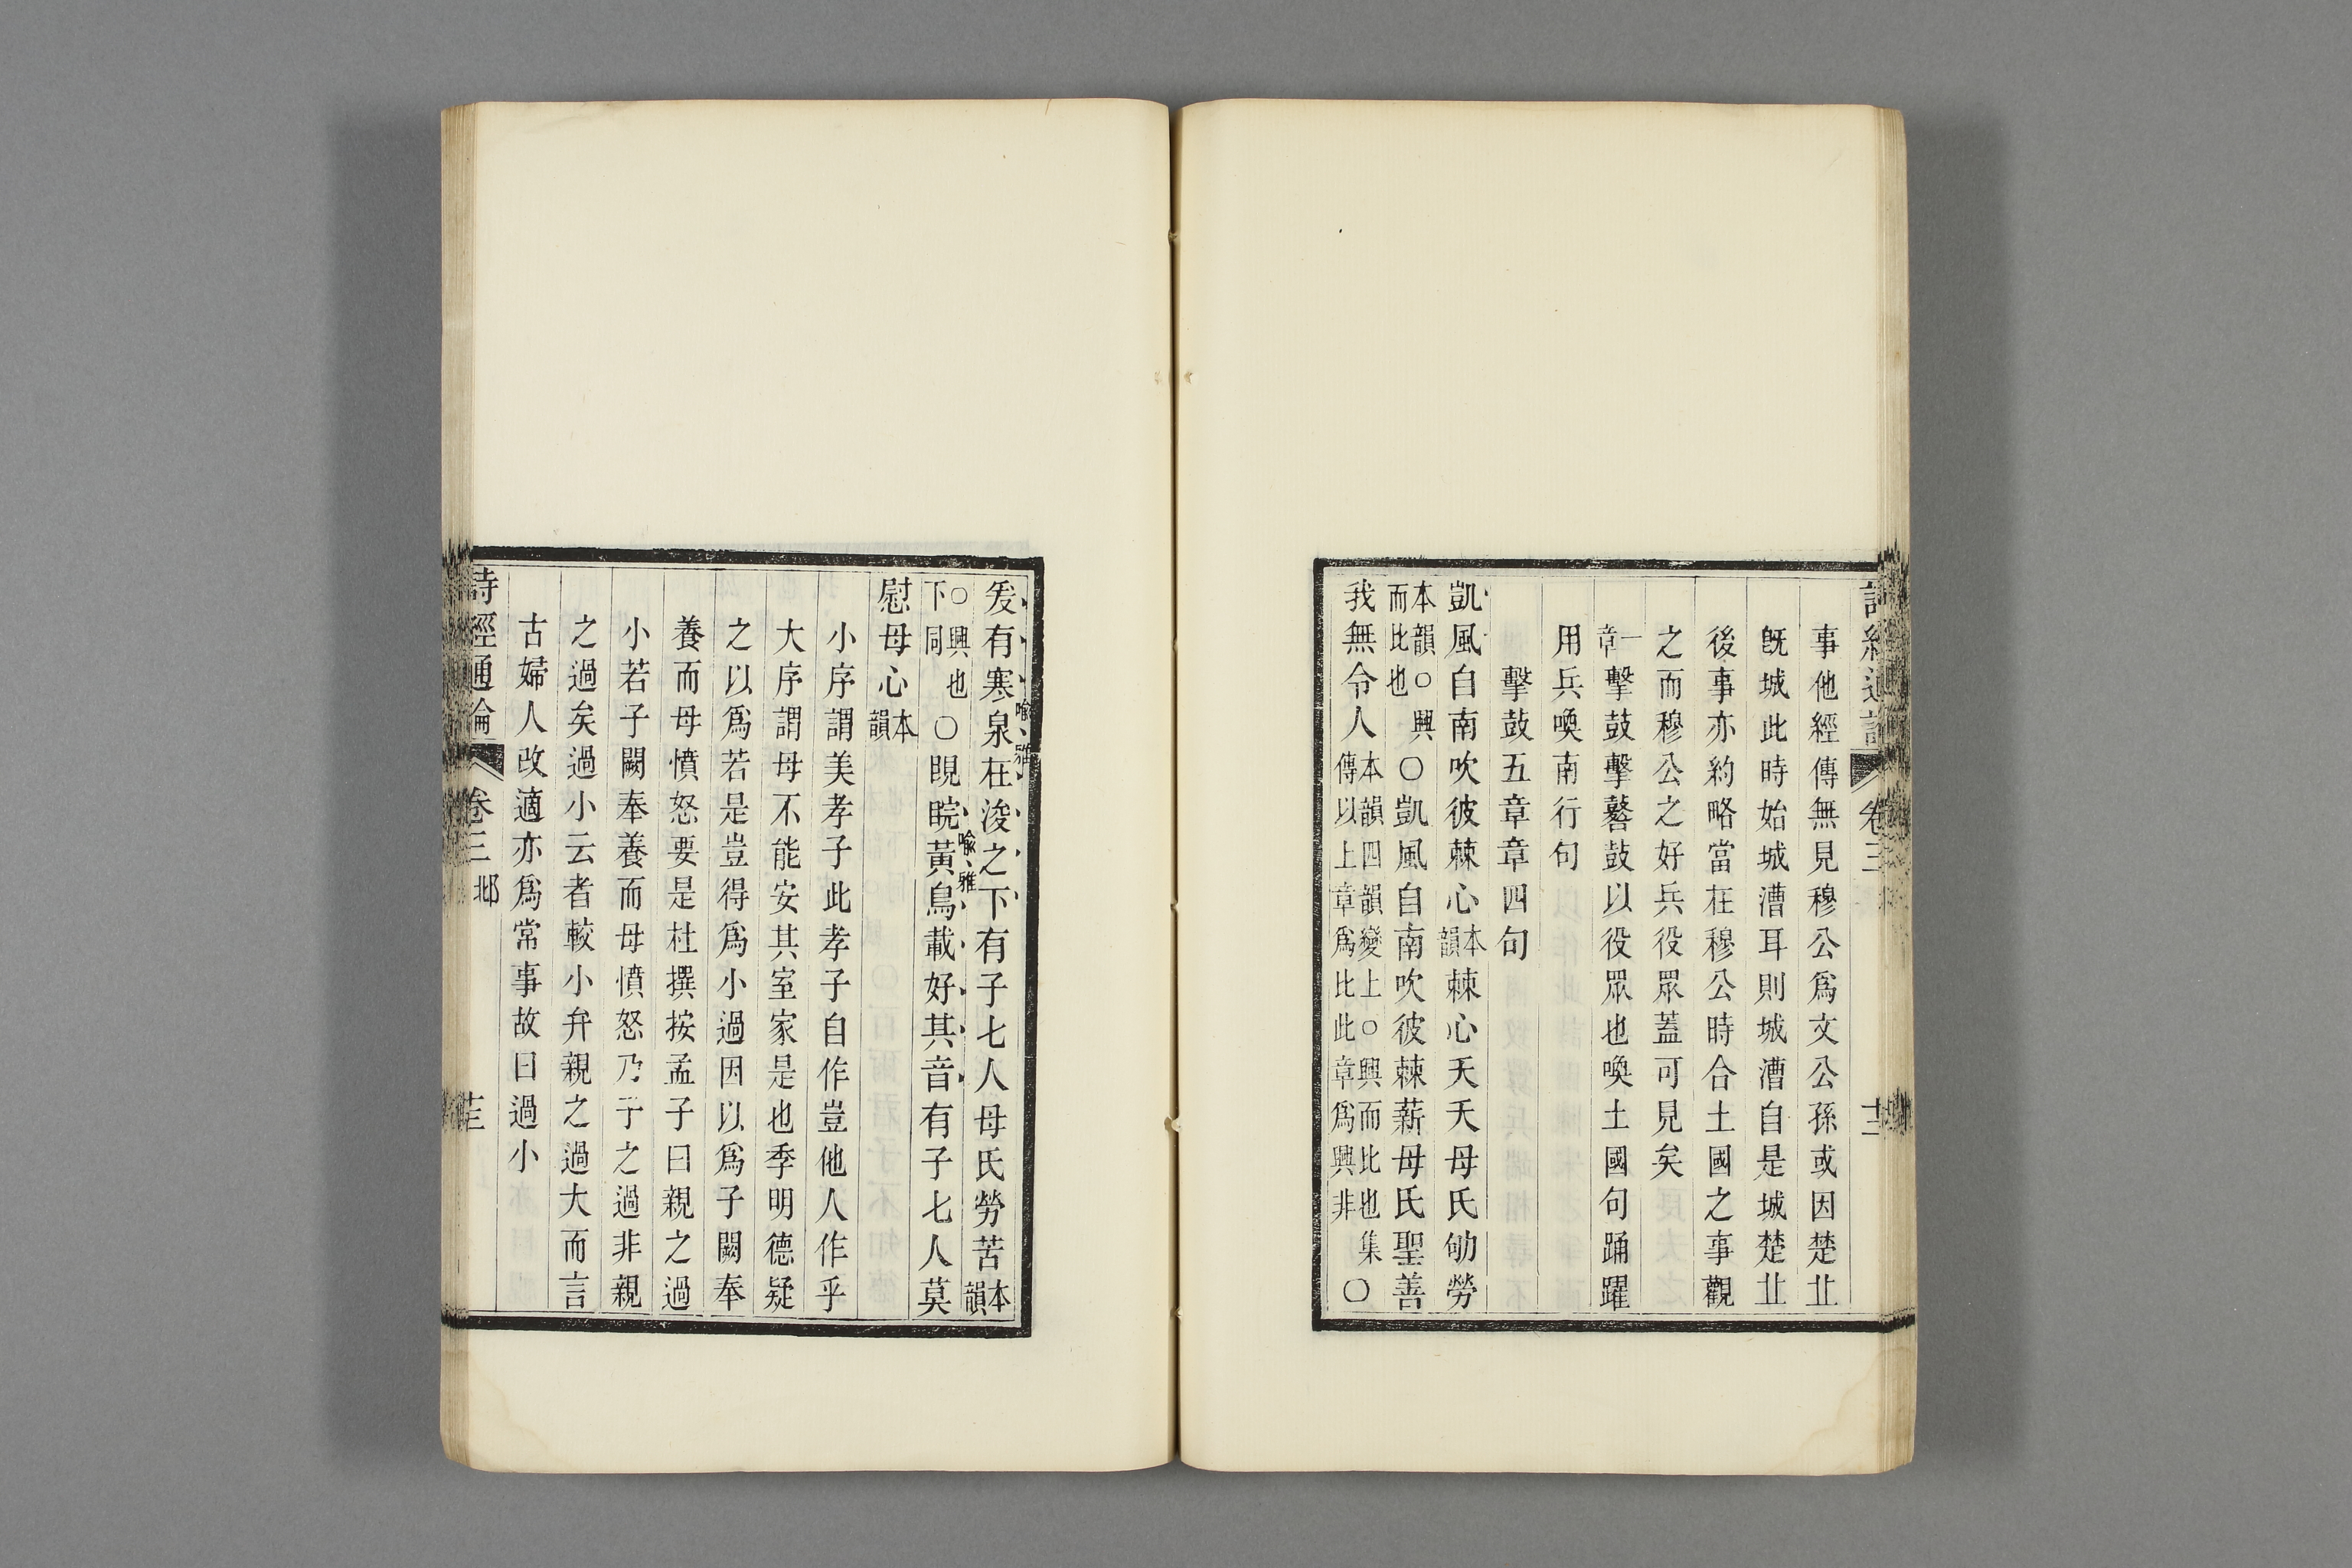 詩經通論 卷三
事他經傳無見穆公爲文公孫或因楚丘
旣城此時始城漕耳則城漕自是城楚丘
後事亦約略當在穆公時合土國之事觀
之而穆公之好兵役眾蓋可見矣
一章擊鼓擊鼛鼓以役眾也喚土國句踊躍
用兵喚南行句
擊鼓五章章四句
凱風自南吹彼棘心本韻棘心夭夭母氏劬勞
本韻○興而比也○凱風自南吹彼棘薪母氏聖善
我無令人本韻四韻變上○興而比也集傳以上章爲比此章爲興非○
爰有寒泉在浚之下有子七人母氏勞苦本韻
喻雅
○興也下同○睍睆黃鳥載好其音有子七人莫
喻雅
慰母心本韻
小序謂美孝子此孝子自作豈他人作乎
大序謂母不能安其室家是也季明德疑
之以爲若是豈得爲小過因以爲子闕奉
養而母憤怒要是杜撰按孟子曰親之過
小若子闕奉養而母憤怒乃子之過非親
之過矣過小云者較小弁親之過大而言
古婦人改適亦爲常事故曰過小
詩經通論 卷三 邶 十三